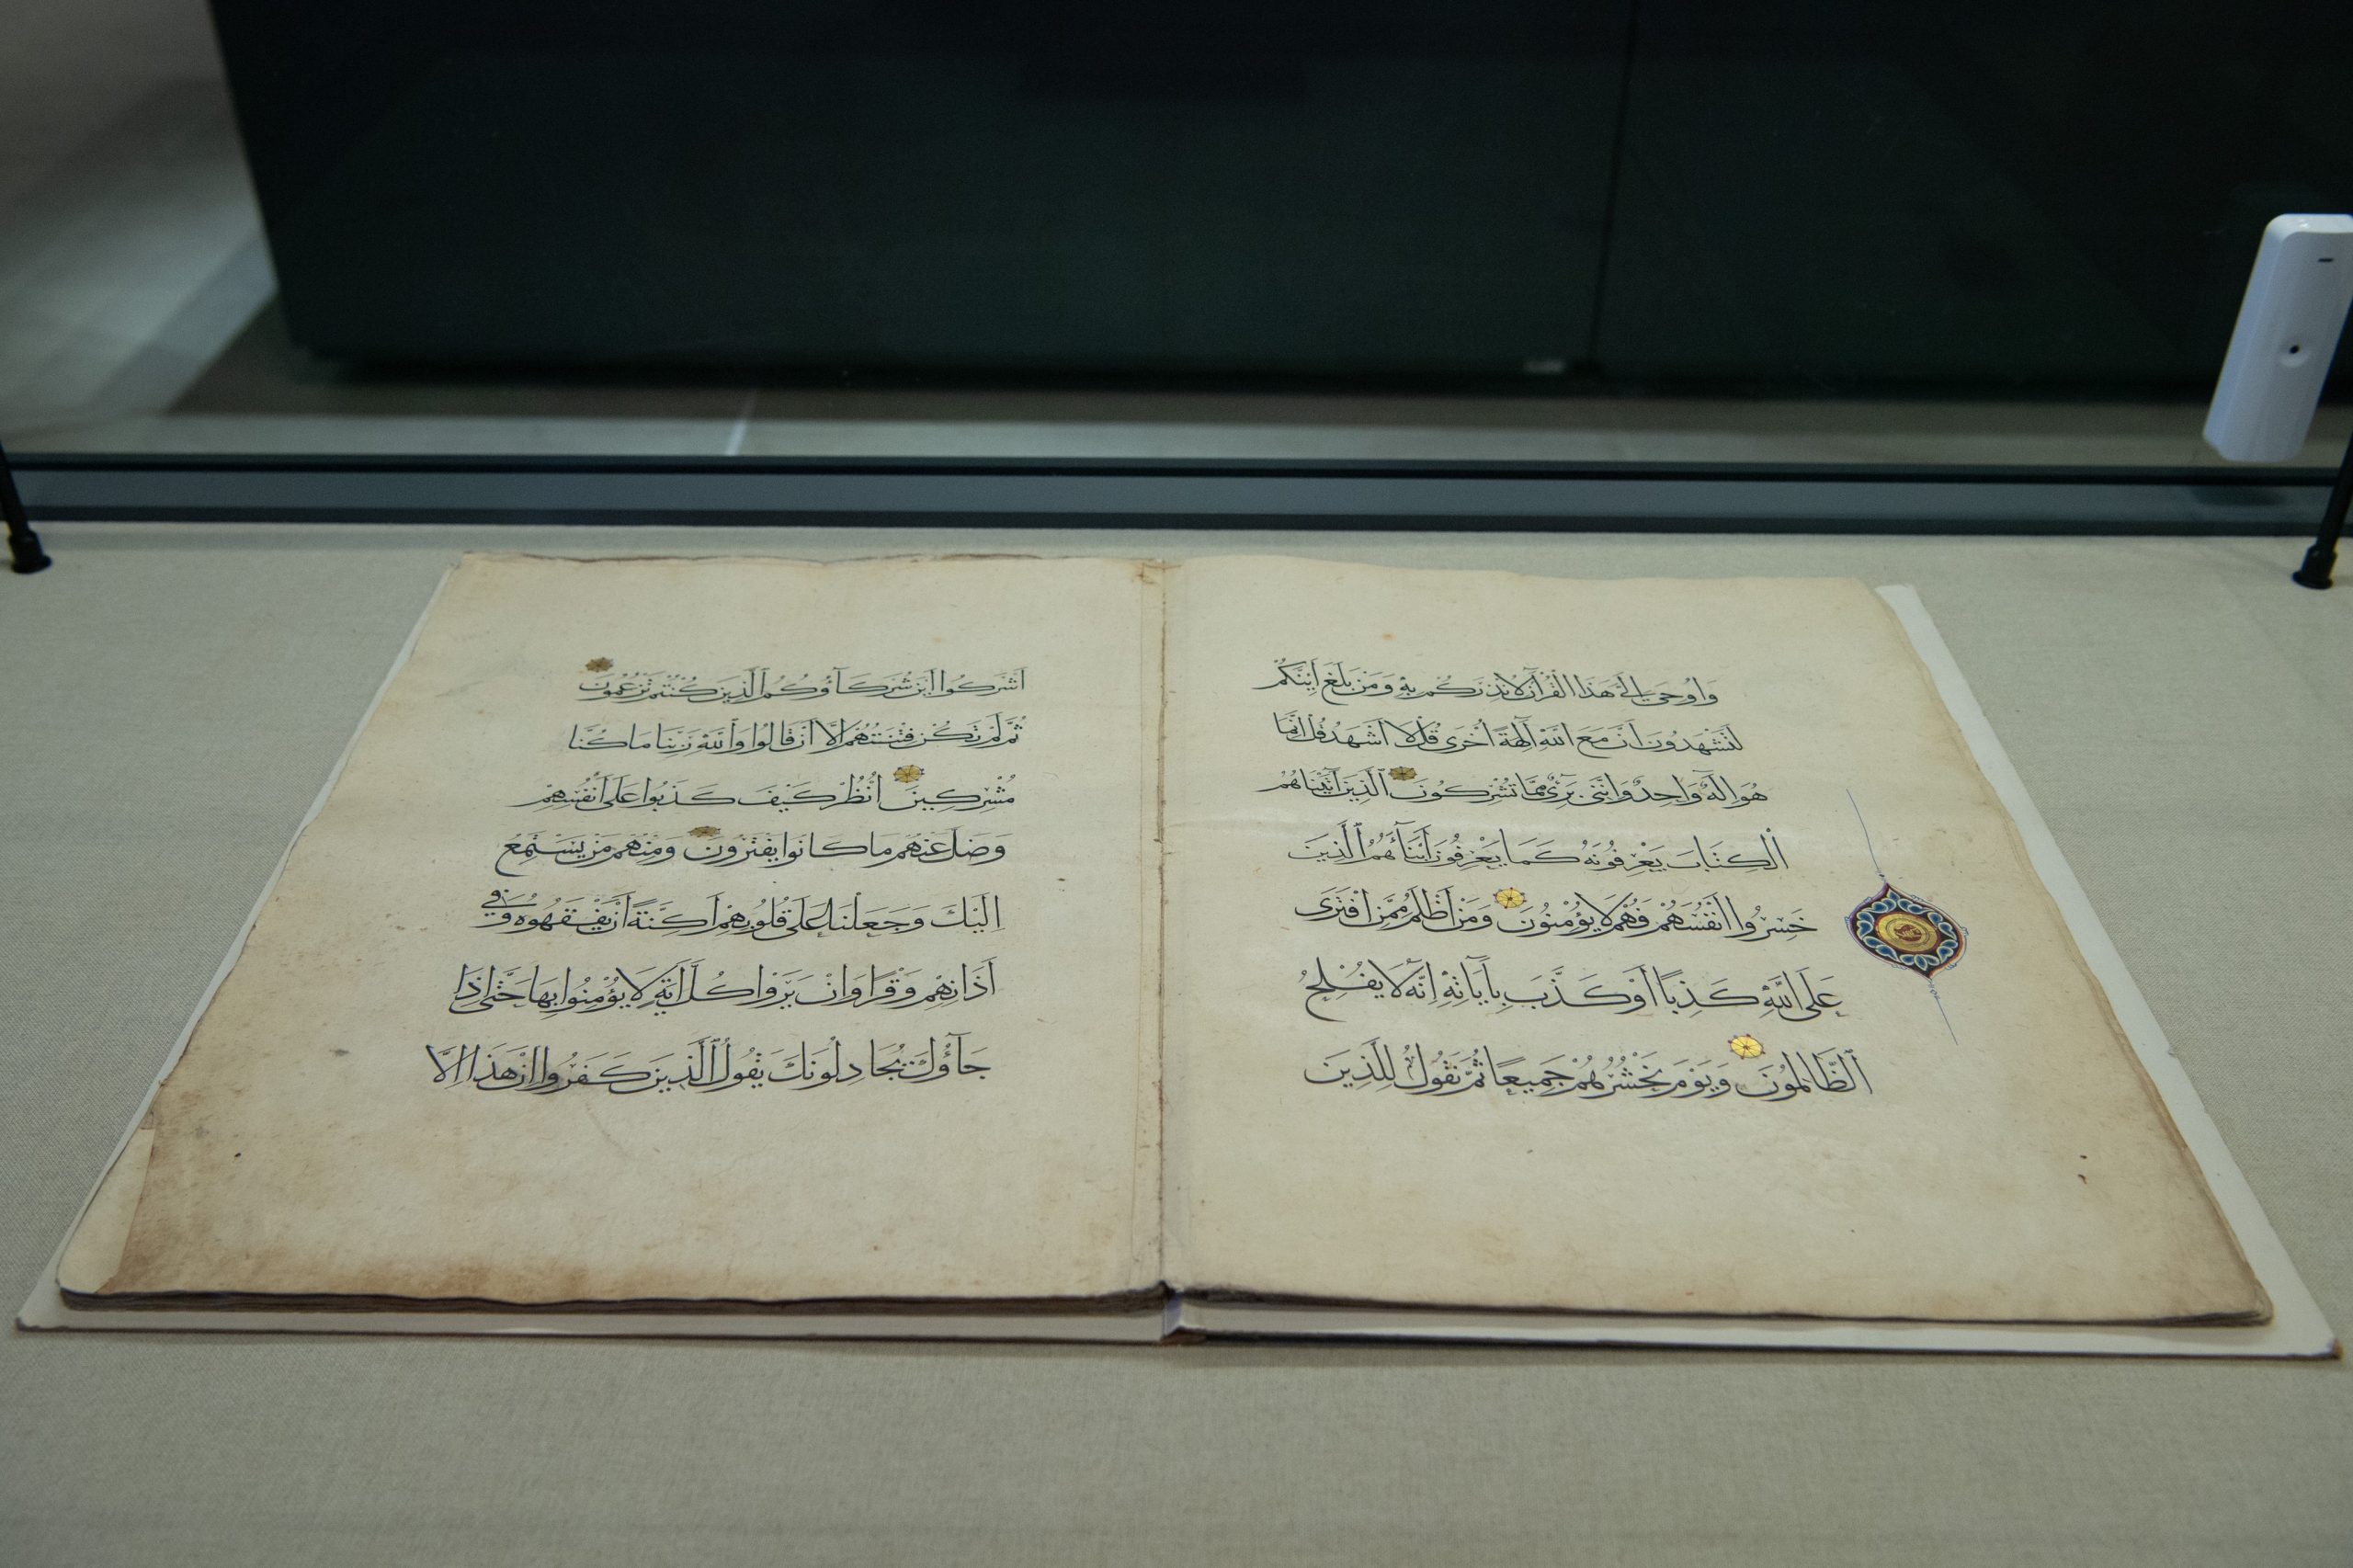 وَاُوحِيَ اِلَيَّ هَذَا الْقُرْآنُ لِاُنْذِرَكُمْ بِهِ وَمَنْ بَلَغَ اَئِنَّكُمْ
لَتَشْهَدُونَ اَنَّ مَعَ اللّٰهِ آلِهَةً اُخْرَى قُلْ لَا اَشْهَدُ قُلْ اِنَّمَا
هُوَ اِلَهٌ وَاحِدٌ وَاِنَّنِي بَرِيءٌ مِمَّا تُشْرِكُونَ الَّذِينَ آتَيْنَاهُمُ
الْكِتَابَ يَعْرِفُونَهُ كَمَا يَعْرِفُونَ اَبْنَآءَهُمُ الَّذِينَ
خَسِرُوا اَنْفُسَهُمْ فَهُمْ لَا يُؤْمِنُونَ وَمَنْ اَظْلَمُ مِمَّنِ افْتَرَى
عَلَى اللّٰهِ كَذِبًا اَوْ كَذَّبَ بِآيَاتِهِ اِنَّهُ لَا يُفْلِحُ
الظَّالِمُونَ وَيَوْمَ نَحْشُرُهُمْ جَمِيعًا ثُمَّ نَقُولُ لِلَّذِينَ
اَشْرَكُوا اَيْنَ شُرَكَآؤُكُمُ الَّذِينَ كُنْتُمْ تَزْعُمُونَ
ثُمَّ لَمْ تَكُنْ فِتْنَتُهُمْ اِلَّا اَنْ قَالُوا وَاللّٰهِ رَبِّنَا مَا كُنَّا
مُشْرِكِينَ اُنْظُرْ كَيْفَ كَذَبُوا عَلَى اَنْفُسِهِمْ
وَضَلَّ عَنْهُمْ مَا كَانُوا يَفْتَرُونَ وَمِنْهُمْ مَنْ يَسْتَمِعُ
اِلَيْكَ وَجَعَلْنَا عَلَى قُلُوبِهِمْ اَكِنَّةً اَنْ يَفْقَهُوهُ وَفِي
آذَانِهِمْ وَقْرًا وَاِنْ يَرَوْا كُلَّ آيَةٍ لَا يُؤْمِنُوا بِهَا حَتَّى اِذَا
جَآؤُكَ يُجَادِلُونَكَ يَقُولُ الَّذِينَ كَفَرُوا اِنْ هَذَا اِلَّا